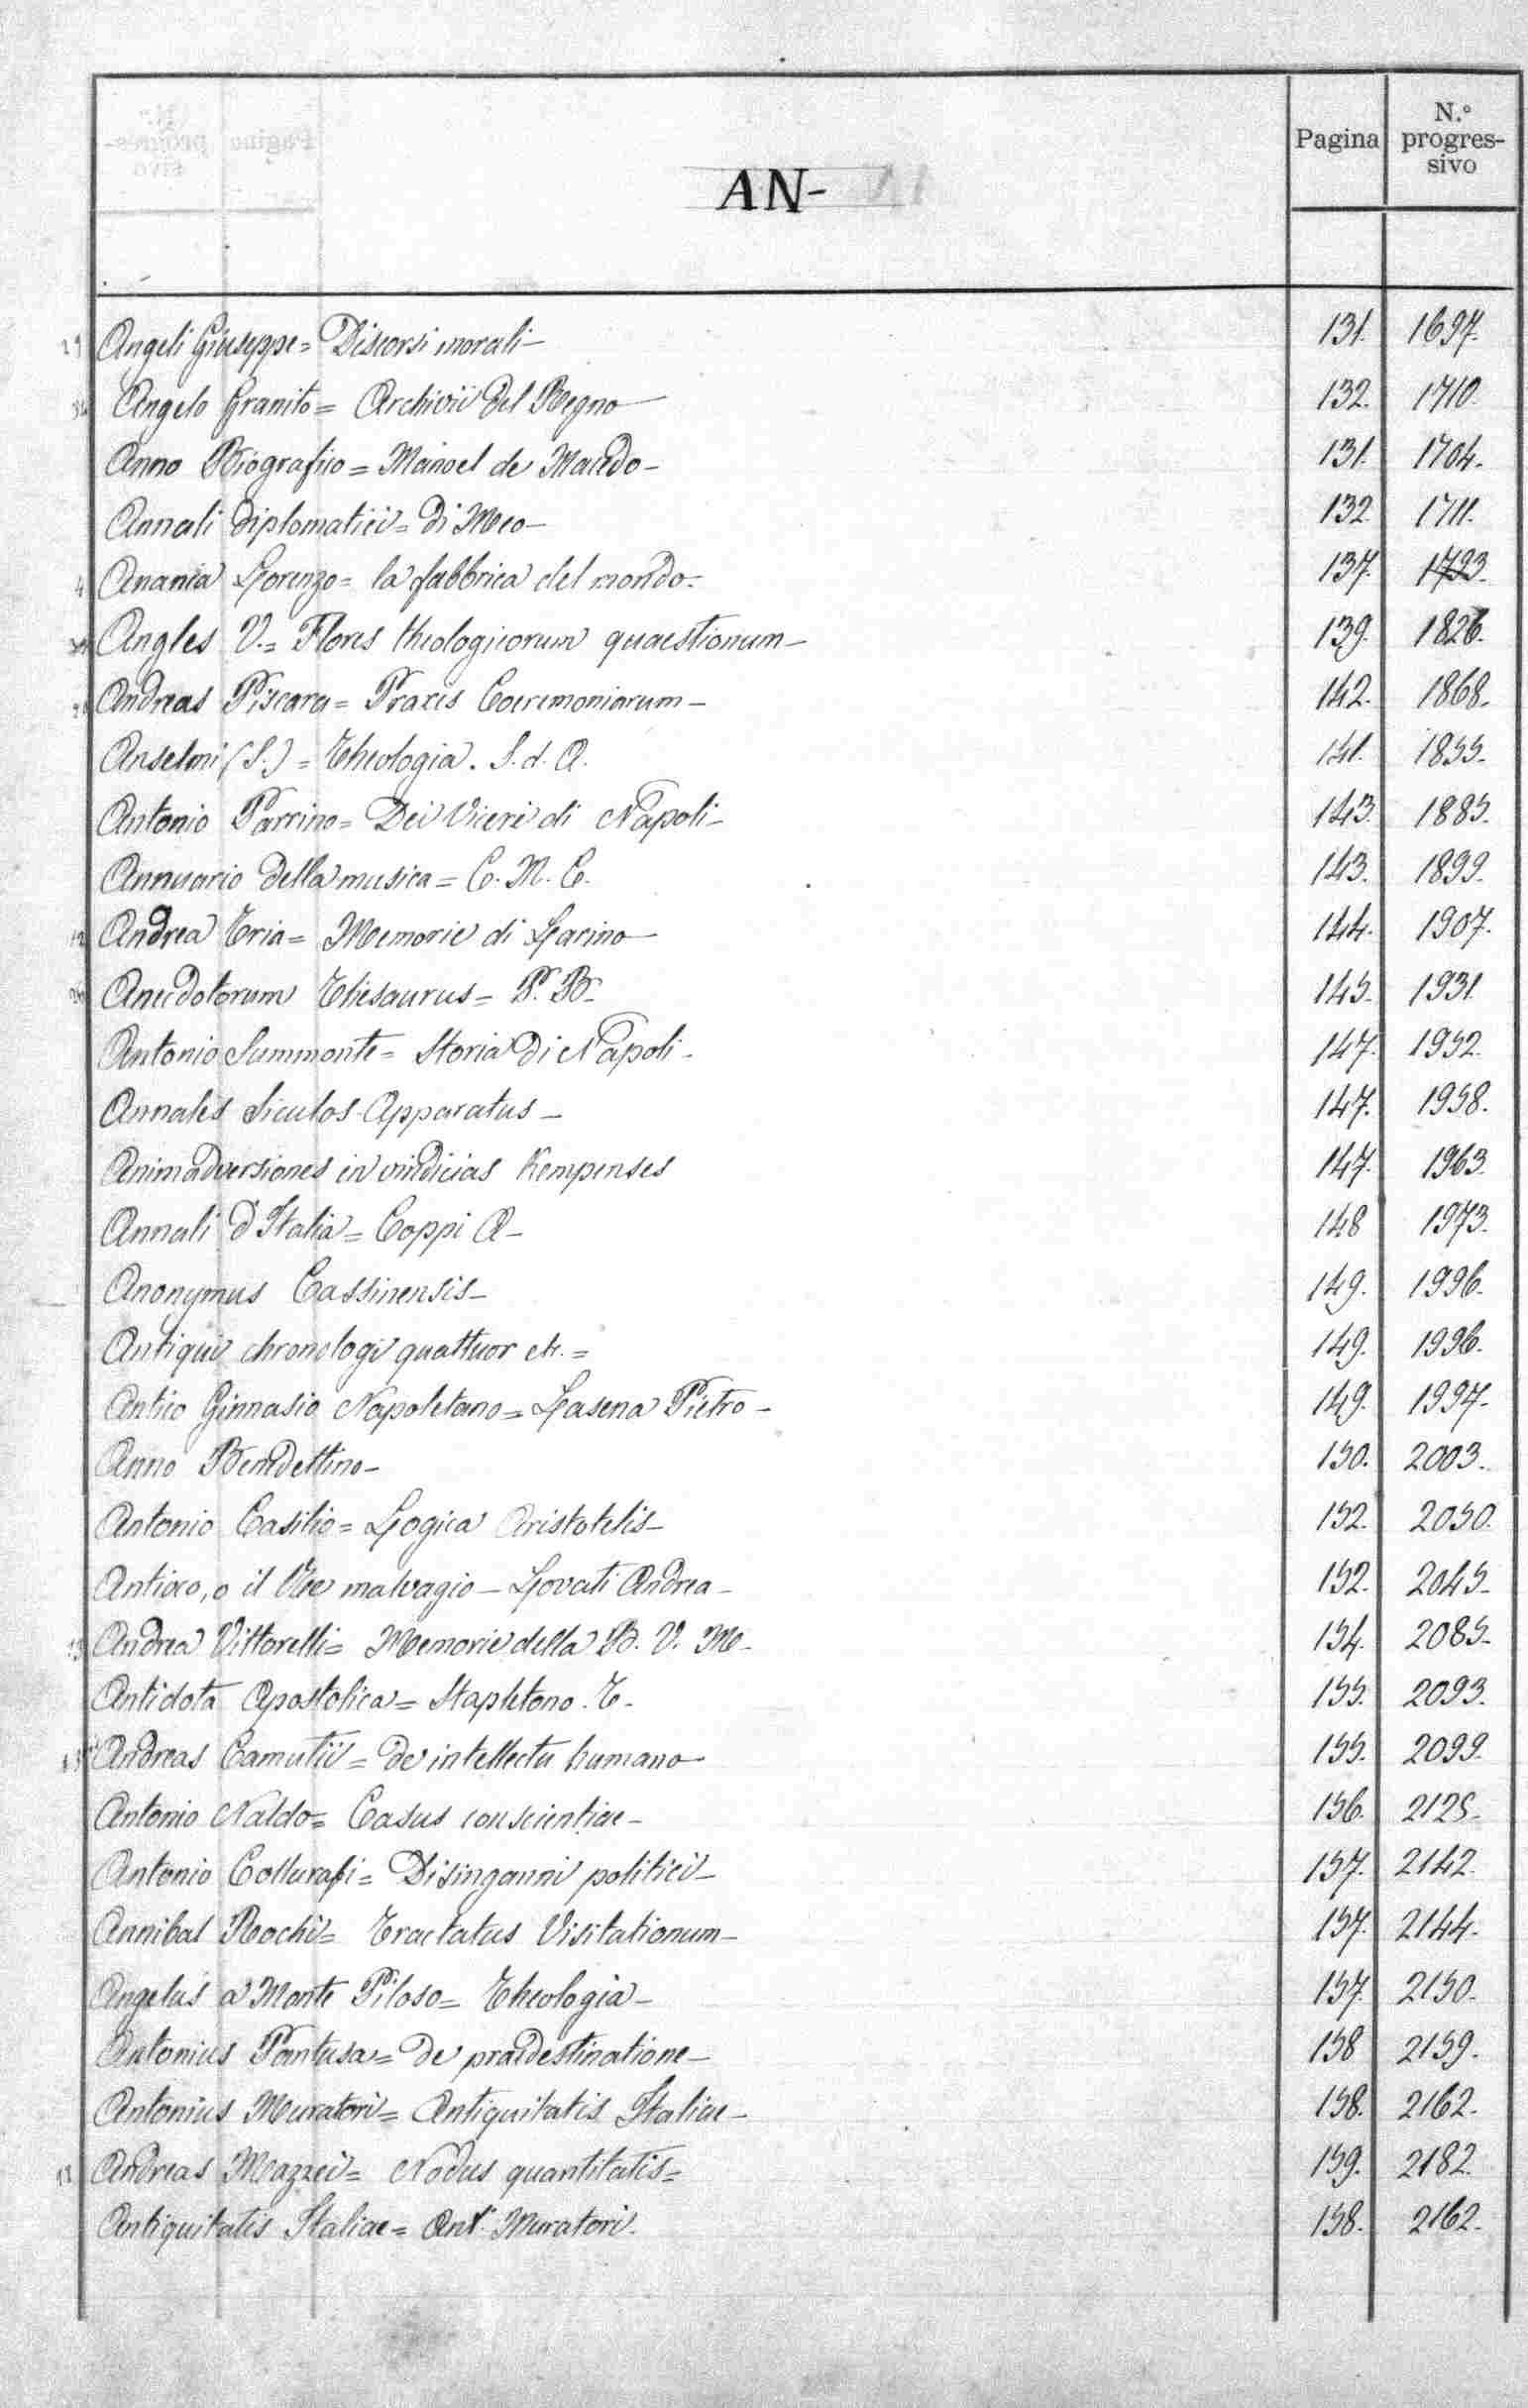 Pagina N.° progres-sivo
AN-
Angeli Giuseppe = Discorsi morali - 131. 1697.
Angelo Granito = Archivii del Regno - 132. 1710.
Anno Biografico = Manoel de Macedo - 131. 1704.
Annali diplomatici = Di Meo - 132 1711.
4 Anania Lorenzo = la fabbrica del mondo - 137. 1793.
Angles V. = Flores theologicorum quaestionum - 139. 1826.
Andreas Piscara = Praxis Coeremoniarum - 142. 1868.
Anselmi (S.) = Theologia. S. d. A. 141. 1855.
Antonio Parrino = Dei Vicerè di Napoli - 143. 1885.
Annuario della musica = C. M. C. 143. 1899.
12 Andrea Tria = Memorie di Larino - 144. 1907.
Anecdotorum Thesaurus = P. B. - 145. 1931.
Antonio Summonte = Storia di Napoli - 147. 1952.
Annales Siculos Apparatus - 147. 1958.
Animadversiones in vindicias Kempenses 147. 1963.
Annali d'Italia = Coppi A - 148 1973.
Anonymus Cassinensis - 149. 1996.
Antiqui chronologi quattuor etc. = 149. 1996.
Antico Ginnasio Napoletano = Lasena Pietro - 149. 1997.
Anno Benedettino - 150. 2003.
Antonio Casilio = Logica Aristotelis - 152. 2050.
Antioco, o il Re malvagio - Lovati Andrea - 152. 2045.
Andrea Vittorelli = Memorie della B. V. M - 154. 2085.
Antidota Apostolica = Stapletono. T. - 155. 2093.
Andreas Camutii = de intellectu humano - 155. 2099.
Antonio Naldo = Casus conscientiae - 156. 2125.
Antonio Collurafi = Disinganni politici - 157. 2142.
Annibal Rochi = Tractatus Visitationum - 157. 2144.
Angelus a Monte Piloso = Theologia - 157. 2150.
Antonius Pantusa = de praedestinatione - 158 2159.
Antonius Muratori = Antiquitatis Italiae - 158. 2162.
Andreas Mazzei = Nodus quantitatis = 159. 2182.
Antiquitatis Italiae = Ant. Muratori. 158. 2162.